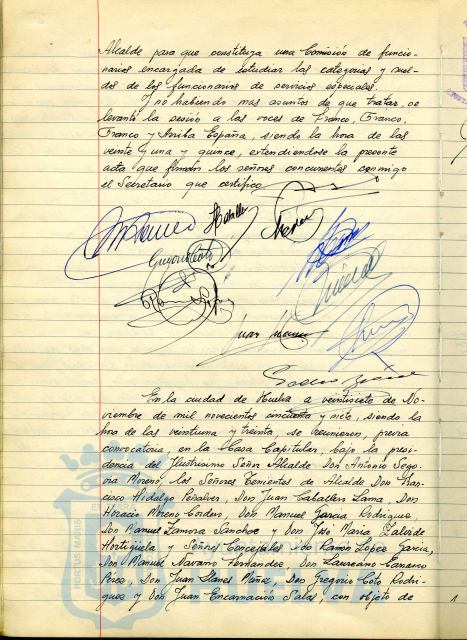 Alcalde para que constituya una Comisión de funcio-
narios encargada de estudiar las categorias y suel-
dos de los funcionarios de servicios especiales.
Y no habiendo mas asuntos de que tratar, se
levantó la sesión a las voces de Franco, Franco,
Franco y Arriba España, siendo la hora de las
veinte y una y quince, extendiendose la presente
acta que firman los señores concurrentes conmigo
el Secretario que certifico.
H Caballero
Gregorio Coto
Juan
En la ciudad de Huelva a veintisiete de No-
viembre de mil novecientos cincuenta y siete, siendo la
hora de las veintiuna y treinta se reunieron, previa
convocatoria, en la Casa Capitular, bajo la presi-
dencia del Ilustrisimo Señor Alcalde Don Antonio Sego-
via Moreno, los Señores Tenientes de Alcalde Don Fran-
cisco Hidalgo Peñalver, Don Juan Caballero Lama, Don
Horacio Moreno Cordero, Don Manuel Garcia Rodriguez,
Don Manuel Zamora Sanchez y Don José Maria Zalvide
Hortigüela y Señores Concejales Don Ramon López Garcia,
Don Manuel Navarro Fernandez, Don Laureano Carrasco
Pérez, Don Juan Llanes Muñiz, Don Gregorio Coto Rodri-
guez y Don Juan Encarnación Salas, con objeto de
PORTUS MARIS
1